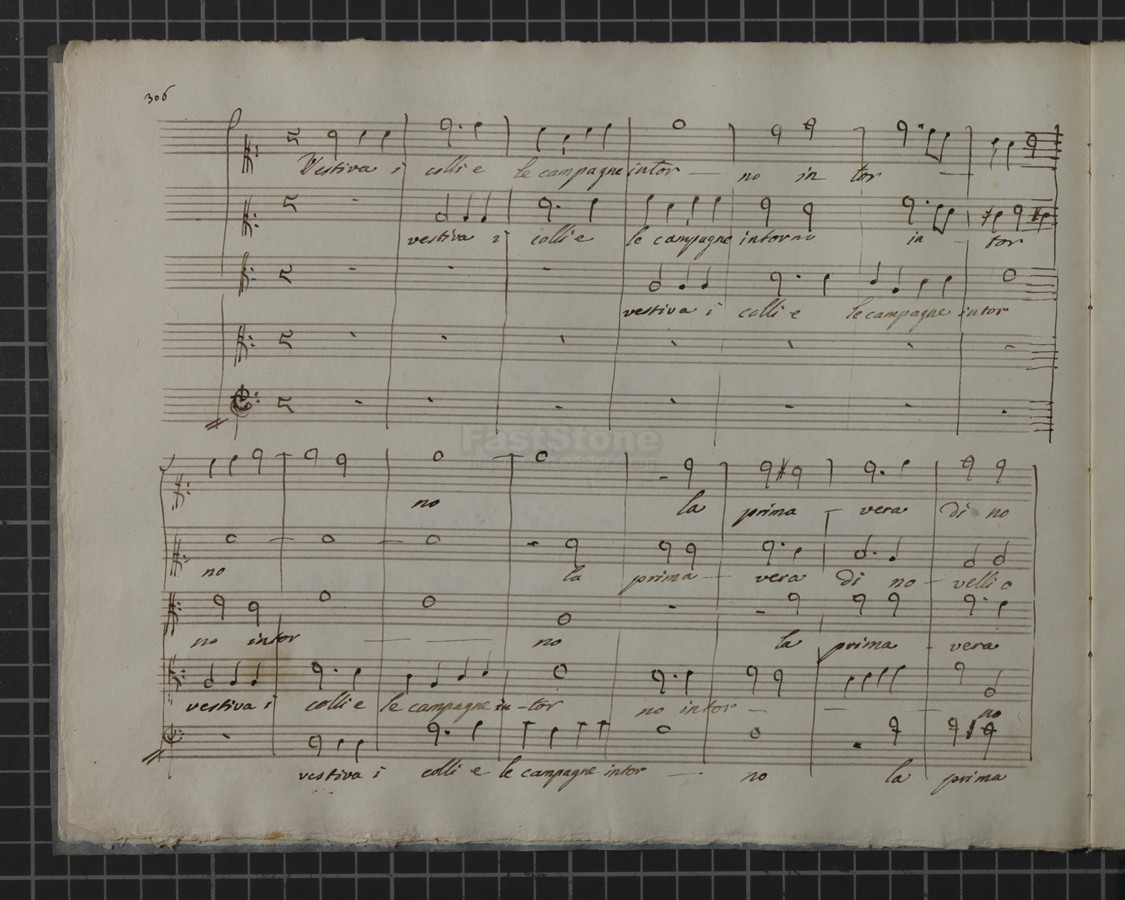 306
Vestiva i colli e le campagne intor — no in tor —
vestiva i colli e le campagne intorno in - tor
vestiva i colli e le campagne intor
FastStone
no la prima — vera di no
no la prima — vera di no - velli o
no intor — — no la prima - vera
vestiva i colli e le campagne in - tor no intor — — — no
vestiva i colli e le campagne intor — no la prima